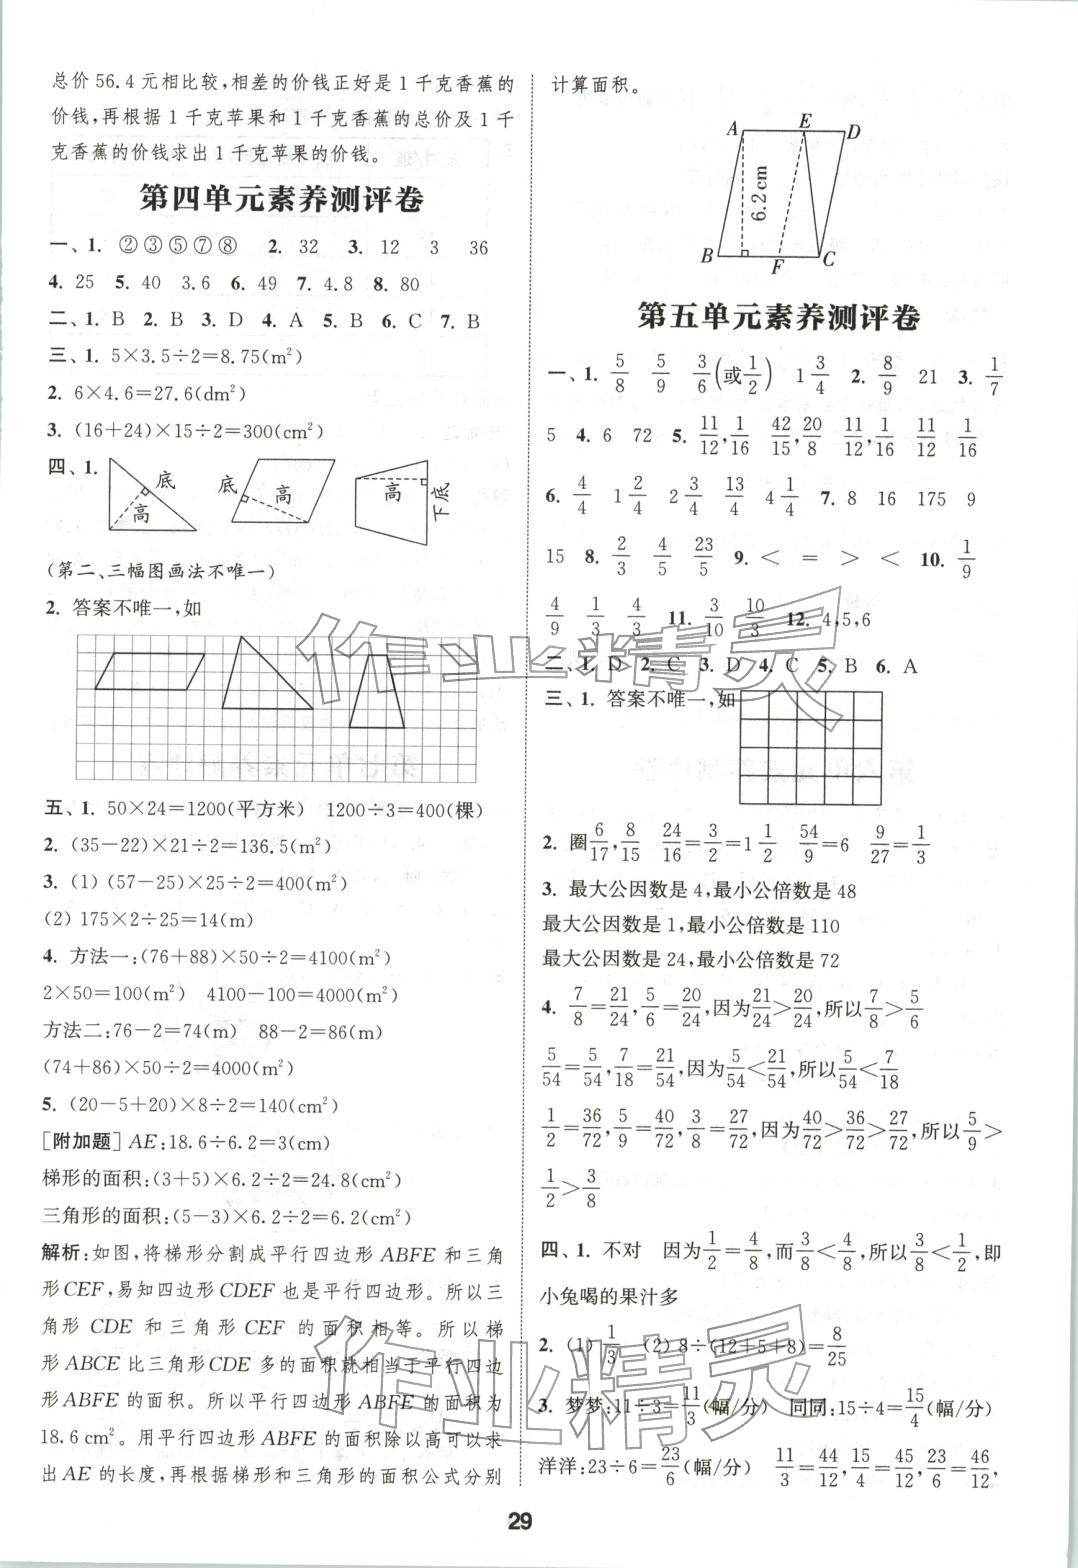 总价56.4元相比较,相差的价钱正好是1千克香蕉的
价钱,再根据1千克苹果和1千克香蕉的总价及1千
克香蕉的价钱求出1千克苹果的价钱。
第四单元素养测评卷
一、1. ②③⑤⑦⑧ 2. 32 3. 12 3 36
4. 25 5. 40 3.6 6. 49 7. 4.8 8. 80
二、1. B 2. B 3. D 4. A 5. B 6. C 7. B
三、1. 5×3.5÷2=8.75(m²)
2. 6×4.6=27.6(dm²)
3. (16+24)×15÷2=300(cm²)
四、1. 底 高 底 高 高 下底
(第二、三幅图画法不唯一)
2. 答案不唯一,如
五、1. 50×24=1200(平方米) 1200÷3=400(棵)
2. (35-22)×21÷2=136.5(m²)
3. (1) (57-25)×25÷2=400(m²)
(2) 175×2÷25=14(m)
4. 方法一:(76+88)×50÷2=4100(m²)
2×50=100(m²) 4100-100=4000(m²)
方法二:76-2=74(m) 88-2=86(m)
(74+86)×50÷2=4000(m²)
5. (20-5+20)×8÷2=140(cm²)
[附加题] AE:18.6÷6.2=3(cm)
梯形的面积:(3+5)×6.2÷2=24.8(cm²)
三角形的面积:(5-3)×6.2÷2=6.2(cm²)
解析:如图,将梯形分割成平行四边形ABFE和三角
形CEF,易知四边形CDEF也是平行四边形。所以三
角形CDE和三角形CEF的面积相等。所以梯
形ABCE比三角形CDE多的面积就相当于平行四边
形ABFE的面积。所以平行四边形ABFE的面积是
18.6 cm²。用平行四边形ABFE的面积除以高可以求
出AE的长度,再根据梯形和三角形的面积公式分别
计算面积。
A E D
6.2cm
B F C
第五单元素养测评卷
一、1. 5/8 5/9 3/6(或1/2) 1 3/4 2. 8/9 21 3. 1/7
5 4. 6 72 5. 11/12,1/16 42/15,20/8 11/12,1/16 11/12 1/16
6. 4/4 1 2/4 2 3/4 13/4 4 1/4 7. 8 16 175 9
15 8. 2/3 4/5 23/5 9. < = > < 10. 1/9
4/9 1/3 4/3 11. 3/10 10/3 12. 4,5,6
二、1. D 2. C 3. D 4. C 5. B 6. A
三、1. 答案不唯一,如
2. 圈6/17,8/15 24/16=3/2=1 1/2 54/9=6 9/27=1/3
3. 最大公因数是4,最小公倍数是48
最大公因数是1,最小公倍数是110
最大公因数是24,最小公倍数是72
4. 7/8=21/24,5/6=20/24,因为21/24>20/24,所以7/8>5/6
5/54=5/54,7/18=21/54,因为5/54<21/54,所以5/54<7/18
1/2=36/72,5/9=40/72,3/8=27/72,因为40/72>36/72>27/72,所以5/9>
1/2>3/8
四、1. 不对 因为1/2=4/8,而3/8<4/8,所以3/8<1/2,即
小兔喝的果汁多
2. (1) 1/3 (2) 8÷(12+5+8)=8/25
3. 梦梦:11÷3=11/3(幅/分) 同同:15÷4=15/4(幅/分)
洋洋:23÷6=23/6(幅/分) 11/3=44/12,15/4=45/12,23/6=46/12,
29
作业精灵
作业精灵